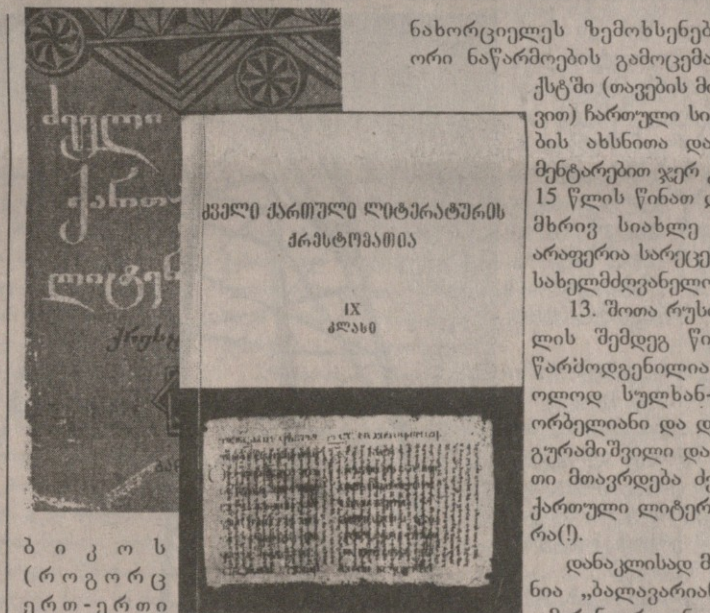 ძველი
ქართუ
ლიტერ
ქრესტ
ძველი ქართული ლიტერატურის
ქრესტომათია
IX
კლასი
ბ ი კ ო ს
( რ ო გ ო რ ც
ე რ თ - ე რ თ ი
ნახორციელეს ზემოხსენებ
ორი ნაწარმოების გამოცემა
ქსტში (თავების მი
ვით) ჩართული სი
ბის ახსნითა და
მენტარებით ჯერ
15 წლის წინათ
მხრივ სიახლე
არაფერია სარეცე
სახელმძღვანელო
13. შოთა რუს
ლის შემდეგ წი
წარმოდგენილია
ოლოდ სულხან-
ორბელიანი და დ
გურამიშვილი და
თი მთავრდება ძ
ქართული ლიტერ
რა(!).
დანაკლისად მ
ნია „ბალავარიან